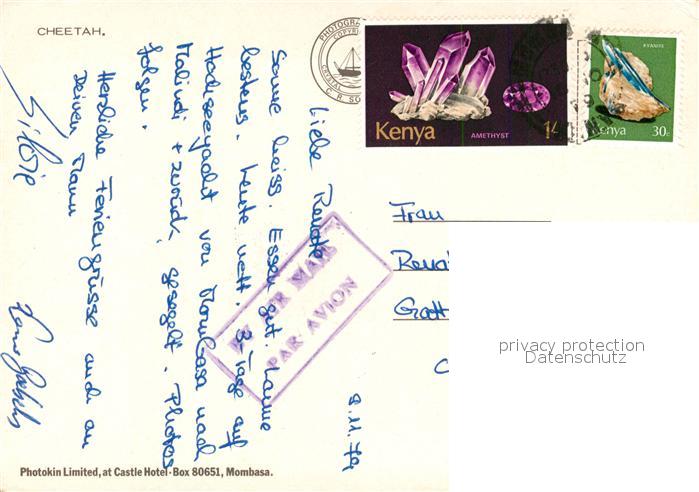 CHEETAH.
PHOTOGRA
COPYRIG
CRYSTAL
C. R. SO
Kenya
AMETHYST
1/-
KYANITE
Kenya 30c
8.11.79
Liebe Renate
Sonne heiss. Essen gut. Laune
bestens. Leute nett. 3-Tage auf
Hochseeyacht von Mombasa nach
Malindi + zurück gesegelt. Photos
folgen.
Herzliche Feriengrüsse auch an
Deinen Mann
BY AIR MAIL
PAR AVION
Frau
Rena
Gatt
privacy protection
Datenschutz
Photokin Limited, at Castle Hotel·Box 80651, Mombasa.